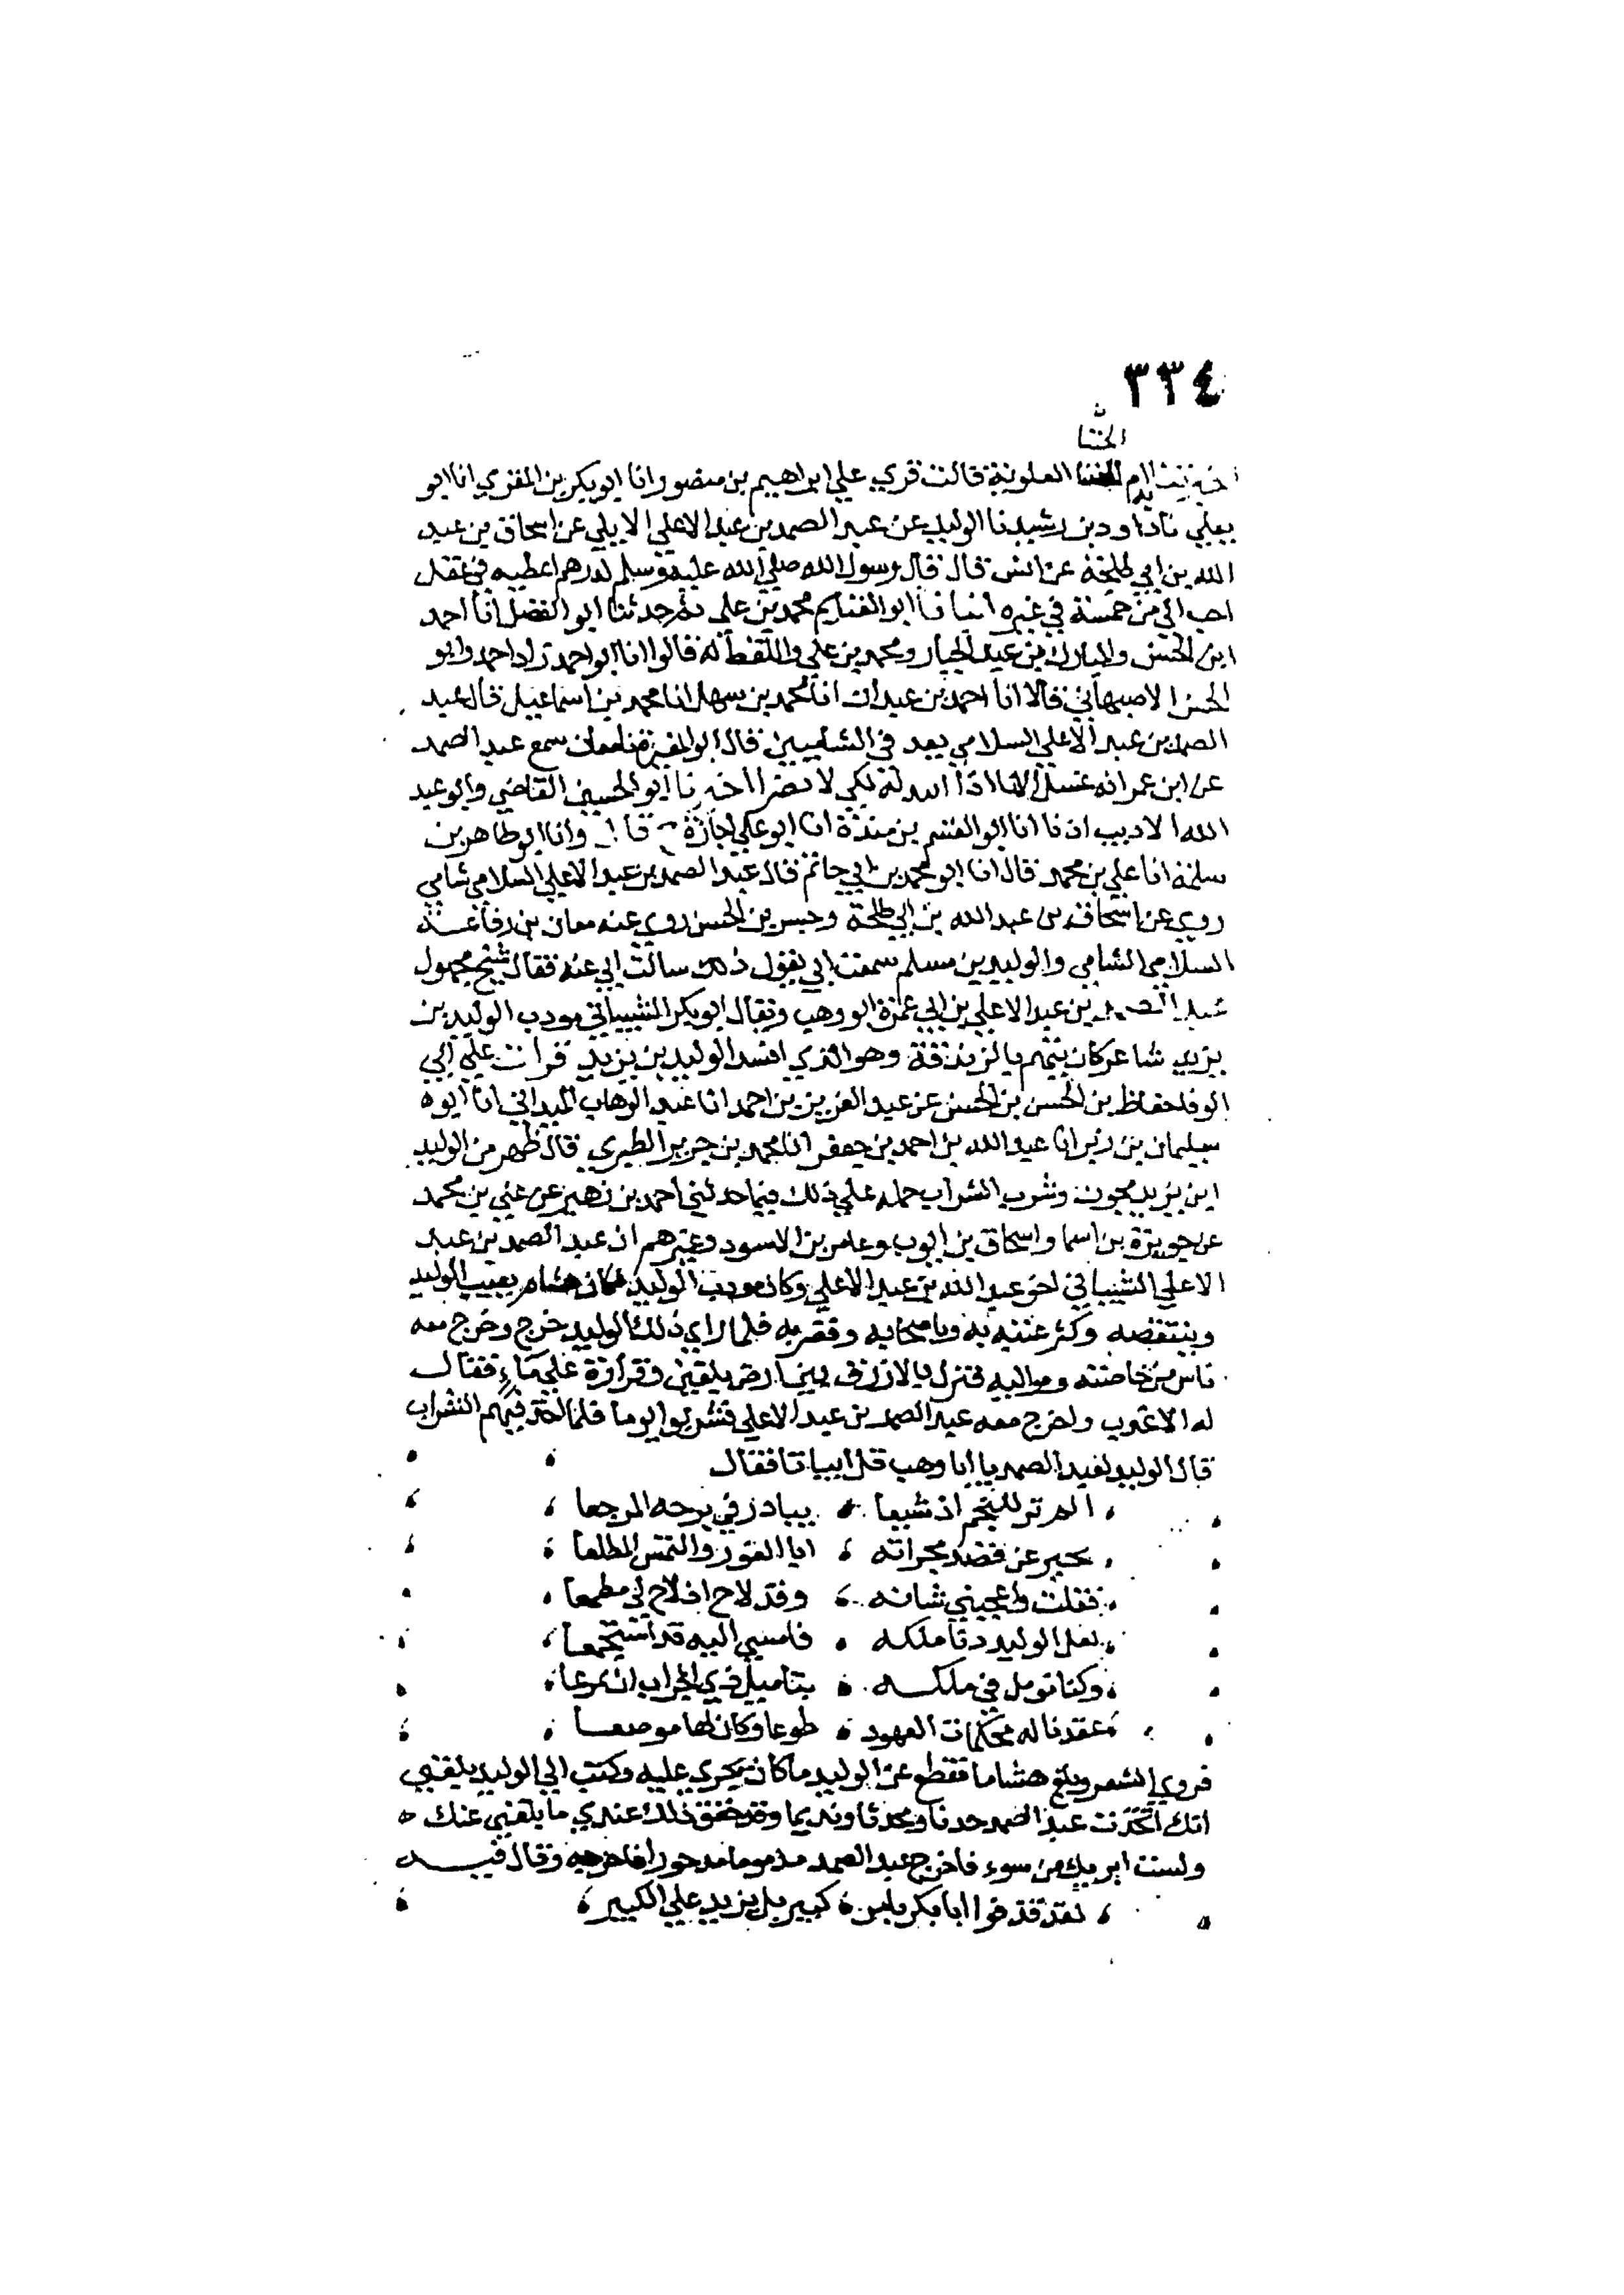 ٣٣٤
المجتبا
العلوية قالت قري علي ابراهيم بن منصور انا ابو بكر بن المقري انا ابو
يعلي نا داود بن رشيد نا الوليد عن عبد الصمد بن عبد الاعلي الايلي عن اسحاق بن عبد
الله بن ابي طلحة عن انس قال قال رسول الله صلي الله عليه وسلم لدرهم اعطيه في عقل
احب الي من خمسة في غيره انبانا ابو الغنايم محمد بن علي ثم حدثنا ابو الفضل انا احمد
ابن الحسن والمبارك بن عبد الجبار ومحمد بن علي واللفظ له قالوا انا ابو احمد زاد احمد وابو
الحسن الاصبهاني قالا انا احمد بن عبدان انا محمد بن سهل انا محمد بن اسماعيل قال عبد
الصمد بن عبد الاعلي السلامي يعد في الشاميين قال ابو المغيرة نا معان سمع عبد الصمد
عن ابن عمر انه غسل اخبرنا ابو الحسين القاضي وابو عبد
الله الاديب اذنا انا ابو القسم بن مندة انا ابو علي اجازة ح قال وانا ابو طاهر بن
سلمة انا علي بن محمد قال انا ابو محمد بن ابي حاتم قال عبد الصمد بن عبد الاعلي السلامي شامي
روي عن اسحاق بن عبد الله بن ابي طلحة وحبس بن الحسن روي عنه معان بن رفاعة
السلامي الشامي والوليد بن مسلم سمعت ابي يقول ذلك سالت ابي عنه فقال شيخ مجهول
عبد الصمد بن عبد الاعلي بن ابي عمرة ابو وهب ويقال ابو بكر الشيباني مودب الوليد بن
يزيد شاعر كان يتهم بالزندقة وهو الذي افسد الوليد بن يزيد قرات علي ابي
الوفا حفاظ بن الحسن بن الحسن عن عبد العزيز بن احمد انا عبد الوهاب الميداني انا ابو
سليمان بن زبر انا عبد الله بن احمد بن جعفر انا محمد بن جرير الطبري قال ظهر من الوليد
ابن يزيد مجون وشرب الشراب حمله علي ذلك فيما حدثني احمد بن زهير عن علي بن محمد
عن جويرة بن اسما واسحاق بن ايوب وعامر بن الاسود وغيرهم ان عبد الصمد بن عبد
الاعلي الشيباني اخو عبد الله بن عبد الاعلي وكان مودب الوليد فكان هشام يعيب الوليد
وينتقصه وكثر عتبه به وباصحابه وقصر به فلما راي ذلك الوليد خرج وخرج معه
ناس من خاصته ومواليه فنزل بالازرق بين ارض بلقين وفزارة علي ماء فقال
له الاغدف واخرج معه عبد الصمد بن عبد الاعلي فشربوا يوما فلما اخذ فيهم الشراب
قال الوليد لعبد الصمد يا ابا وهب قل ابياتا فقال
الم تر للنجم اذ شيعا يبادر في برجه المرجعا
تحير عن قصد مجراته اتا الغور والتمس المطلعا
فقلت واعجبني شانه وقد لاح اذ لاح لي مطمعا
لعل الوليد دنا ملكه فامسي اليه قد استجمعا
وكنا نومل في ملكه بتاميل ذي الجراب ان يمرعا
عقدنا له محكمات العهود طوعا وكان لها موضعا
فروي الشعر وبلغ هشاما فقطع عن الوليد ما كان يجري عليه وكتب الي الوليد بلغني
انك اتخذت عبد الصمد خدنا ومحدثا ونديما وقد حقق ذلك عندي ما بلغني عنك
ولست ابريك من سوء فاخرج عبد الصمد مذموما مدحورا فاخرجه وقال فيه
لقد قذفوا ابا بكر بامر كبير بل يزيد علي الكبير